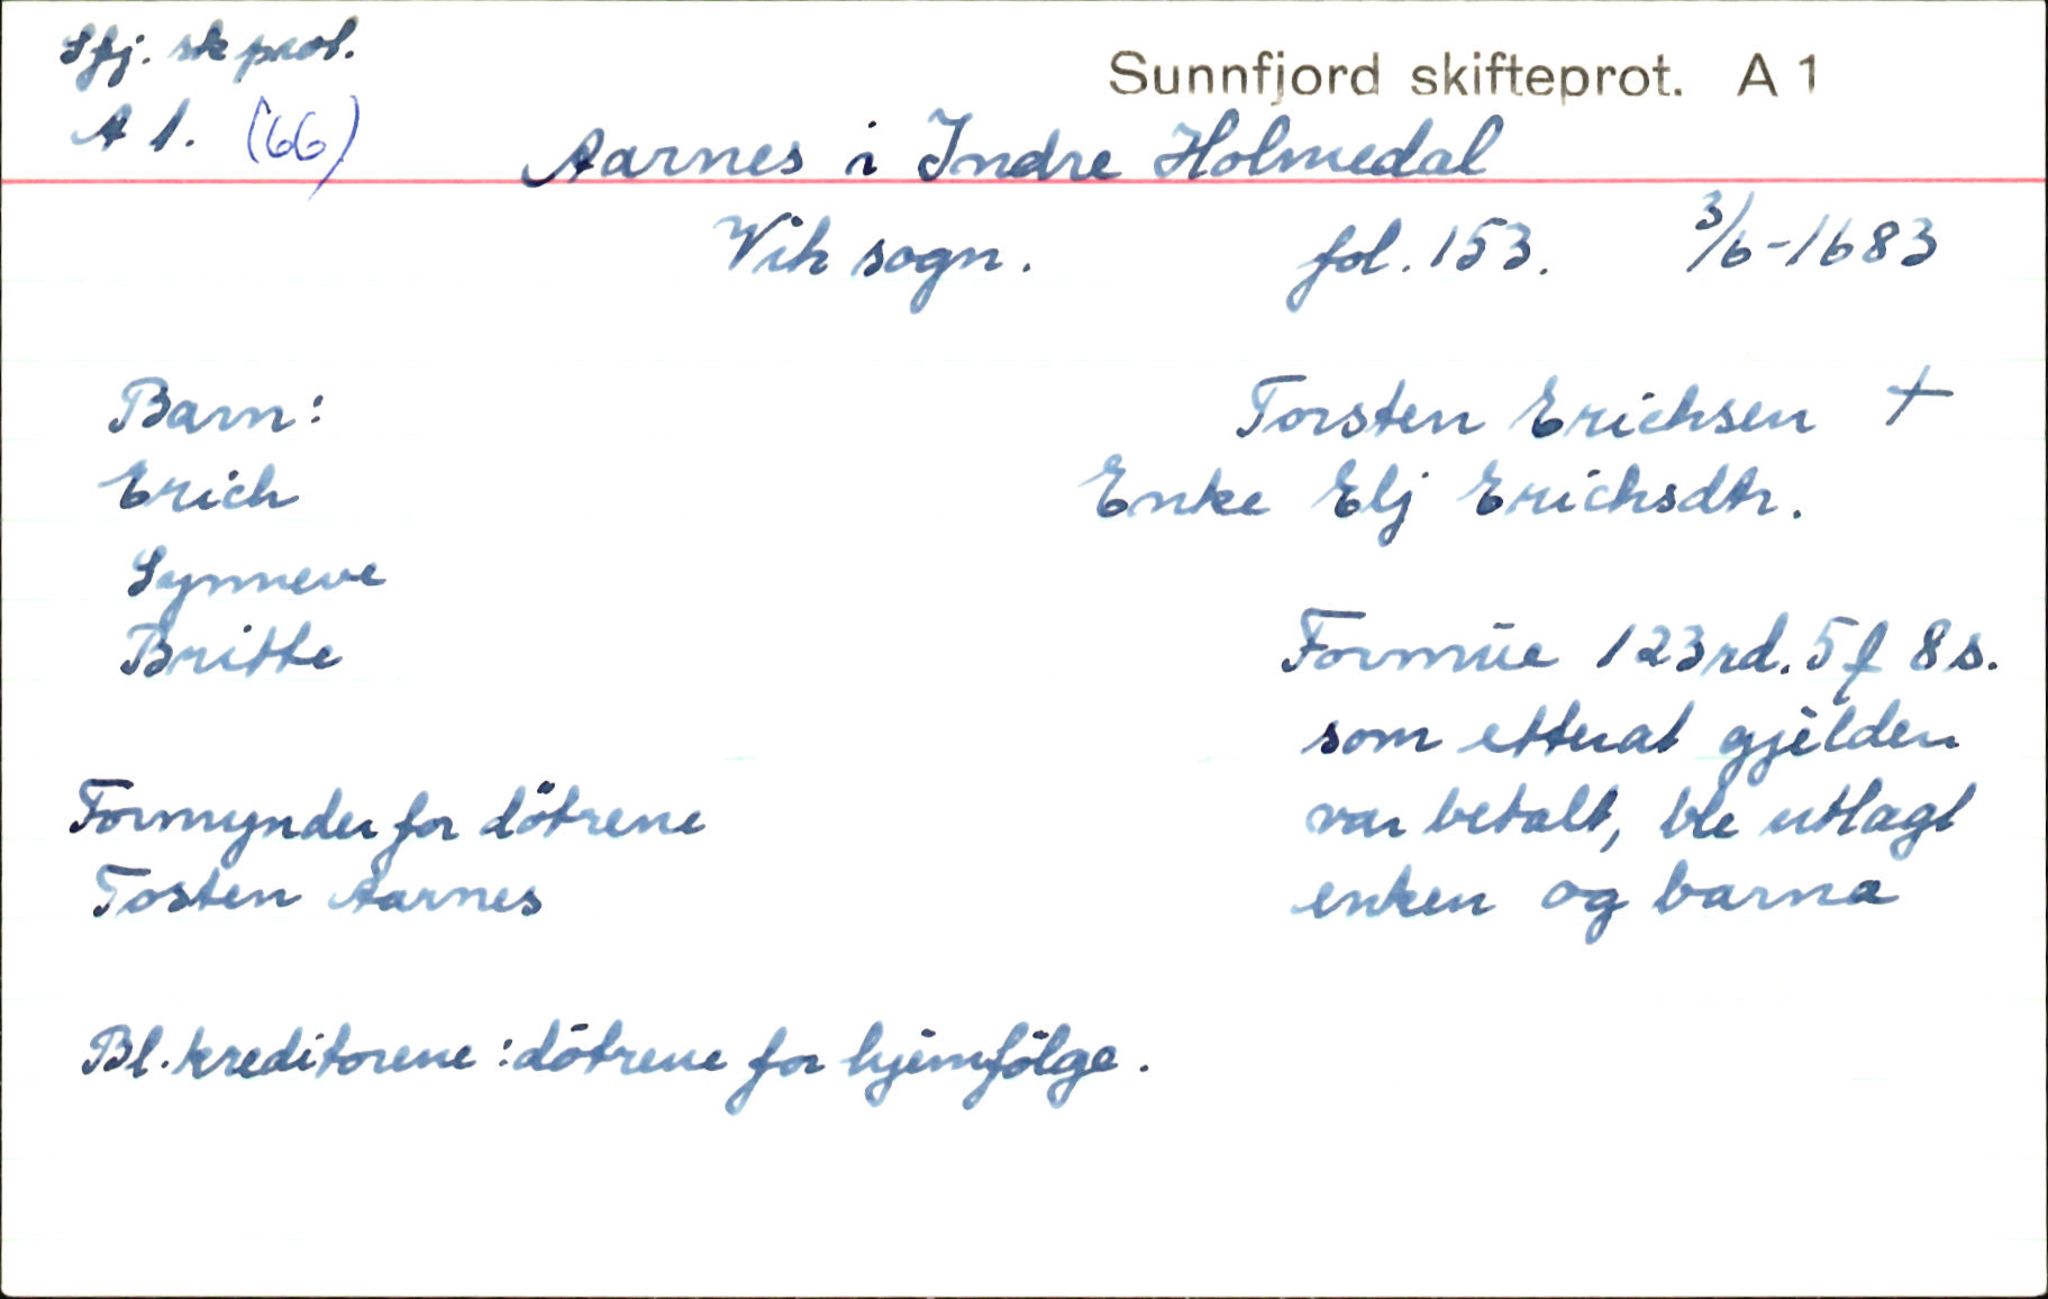 Sfj. sk prot.
Sunnfjord skifteprot. A 1
A 1. (66)
Aarnes i Indre Holmedal
Vik sogn. fol. 153. 3/6-1683
Barn:
Torsten Erichsen †
Erich
Enke Elj Erichsdtr.
Synneve
Britte
Formüe 123 rd. 5 f 8 s.
som etterat gjelden
Formynder for dötrene
var betalt, ble utlagt
Tosten Aarnes
enken og barna
Bl. kreditorene: dötrene for hjemfölge.